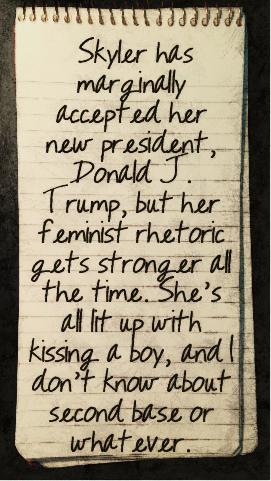 Skyler has
marginally
accepted her
new president,
Donald J.
Trump, but her
feminist rhetoric
gets stronger all
the time. She's
all lit up with
kissing a boy, and I
don't know about
second base or
whatever.